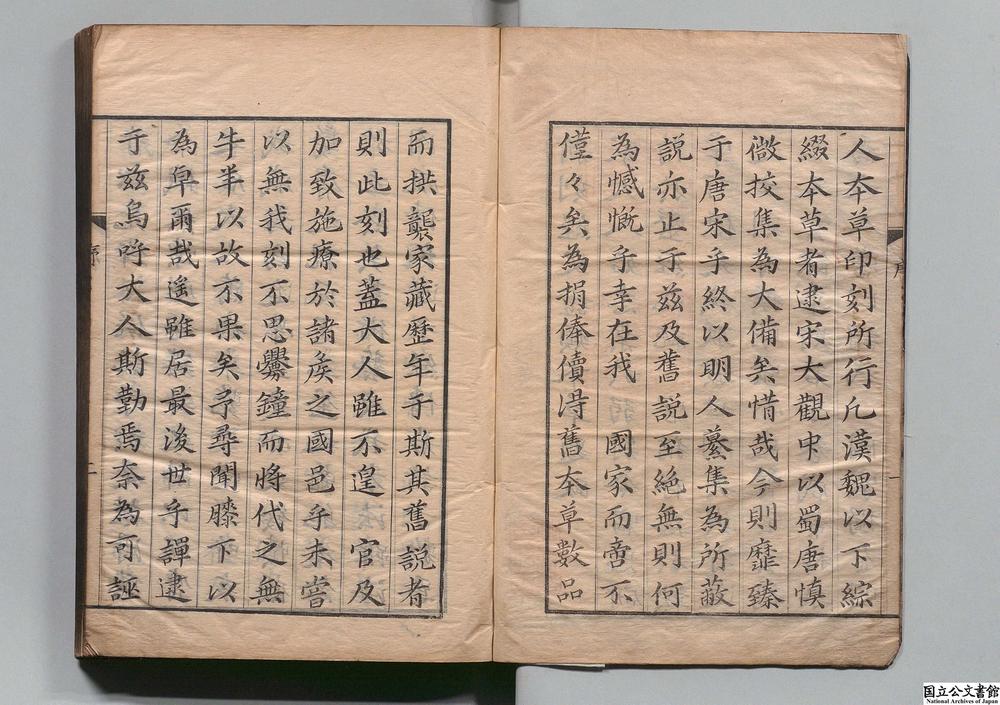 人本草印刻所行凡漢魏以下綜
綴本草者逮宋大觀中以蜀唐慎
微挍集為大備矣惜哉今則靡臻
于唐宋乎終以明人纂集為所蔽
說亦止于兹及舊說至絕無則何
為憾慨乎幸在我 國家而啻不
僅々矣為捐俸價得舊本草數品
序
一
而拱襲家藏歷年于斯其舊說者
則此刻也蓋大人雖不遑 官及
加致施療於諸矦之國邑乎未嘗
以無我刻不思釁鐘而將代之無
牛羊以故不果矣予尋聞膝下以
為皐爾哉遙雖居最後世乎譚逮
于兹烏呼大人斯勤焉奈為可誣
序
二
国立公文書館
National Archives of Japan